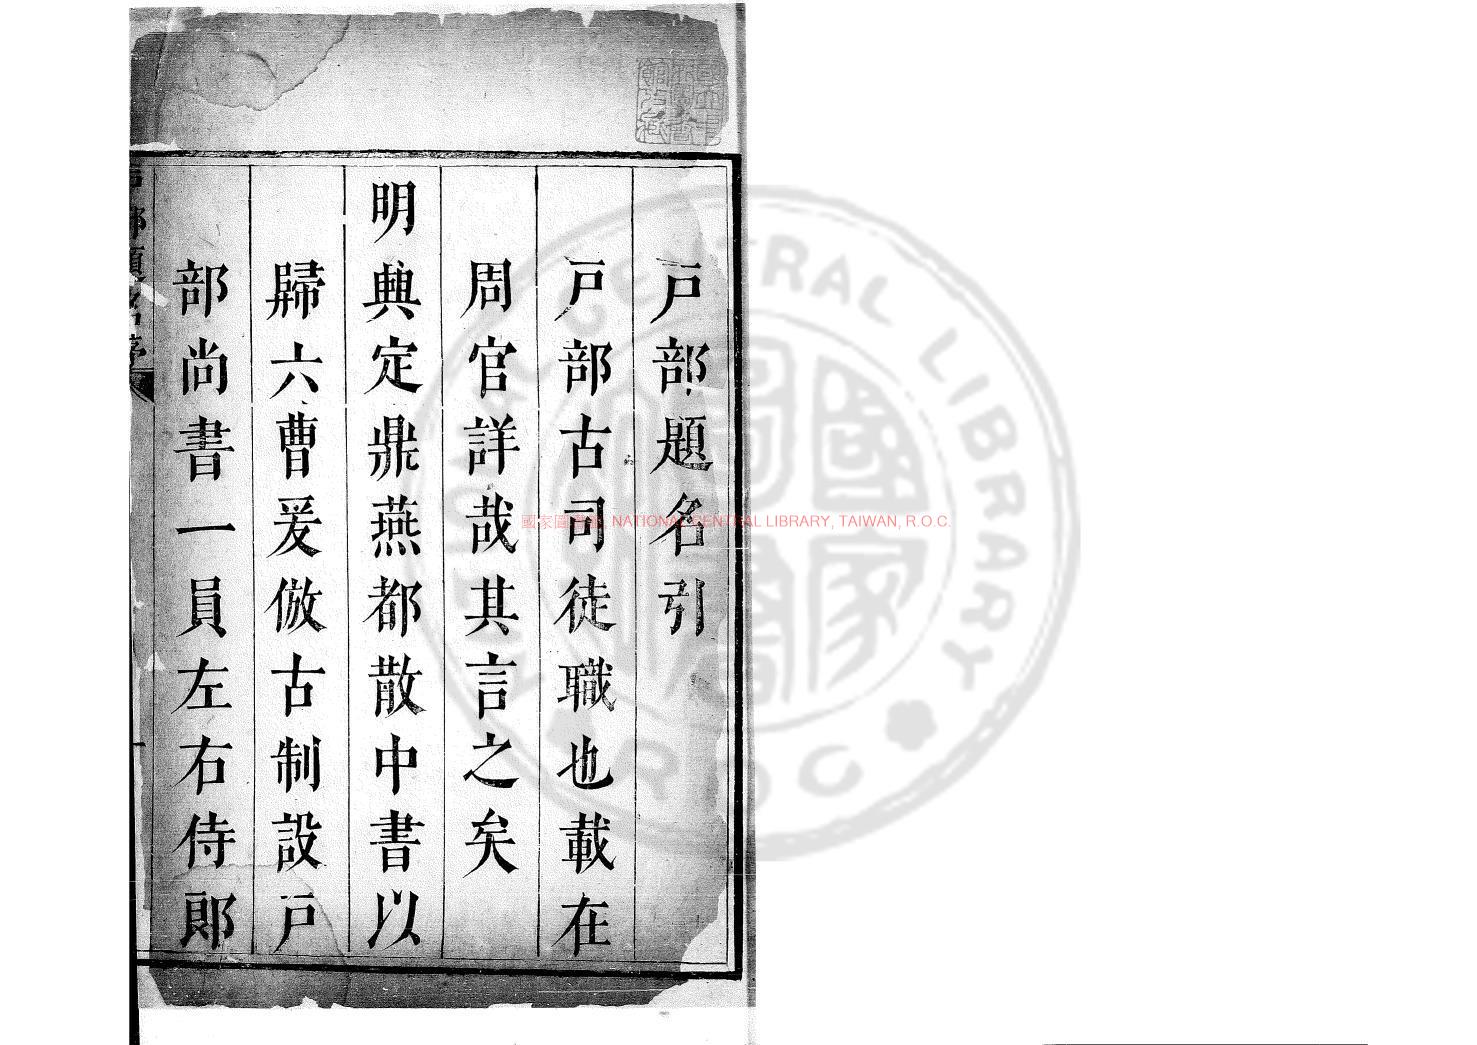 戶部題名引
戶部古司徒職也載在
周官詳哉其言之矣
明興定鼎燕都散中書以
歸六曹爰倣古制設戶
部尚書一員左右侍郎
國家圖書館, NATIONAL CENTRAL LIBRARY, TAIWAN, R.O.C.
NATIONAL CENTRAL LIBRARY
ROC
國家圖書